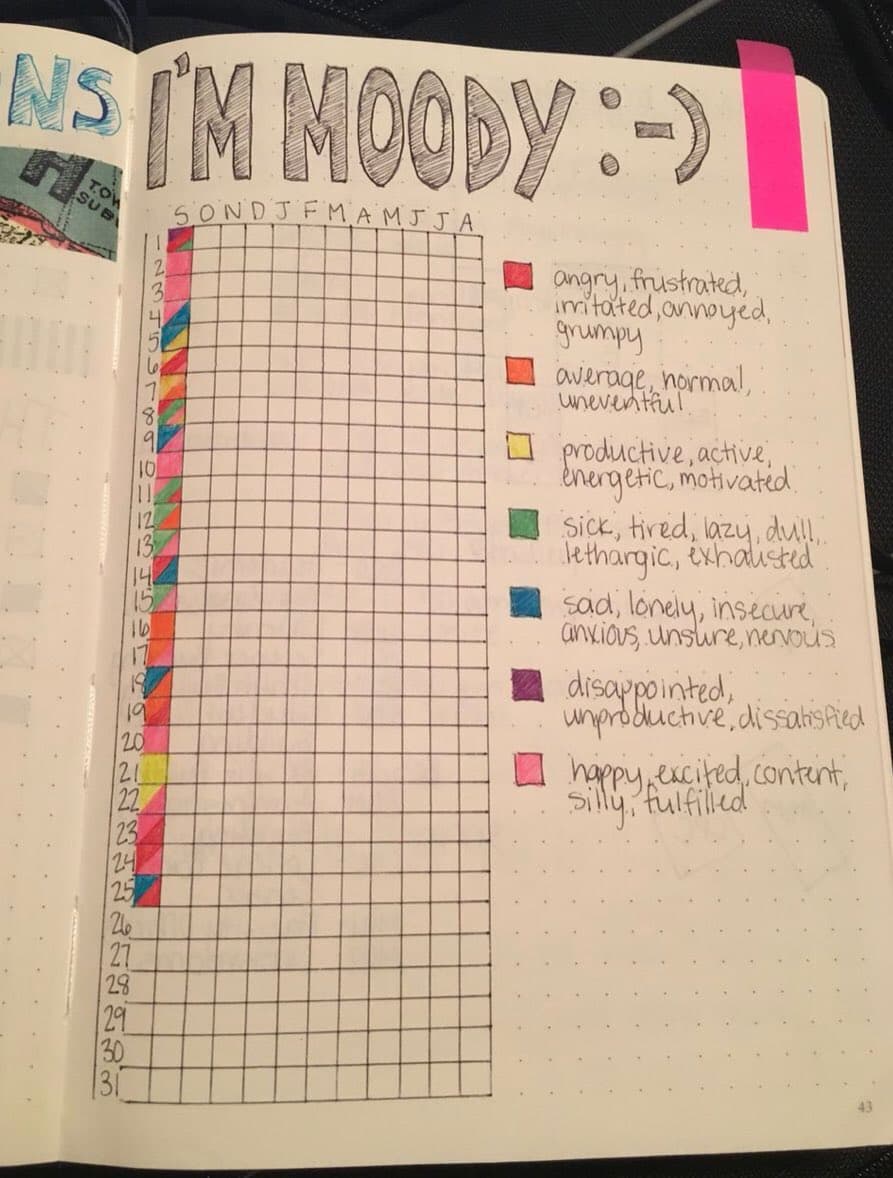 NS
I'M MOODY :-)
TOW
SUB
S O N D J F M A M J J A
1
2
3
4
5
6
7
8
9
10
11
12
13
14
15
16
17
18
19
20
21
22
23
24
25
26
27
28
29
30
31
angry, frustrated,
irritated, annoyed,
grumpy
average, normal,
uneventful
productive, active,
energetic, motivated
sick, tired, lazy, dull,
lethargic, exhausted
sad, lonely, insecure,
anxious, unsure, nervous
disappointed,
unproductive, dissatisfied
happy, excited, content,
silly, fulfilled
43